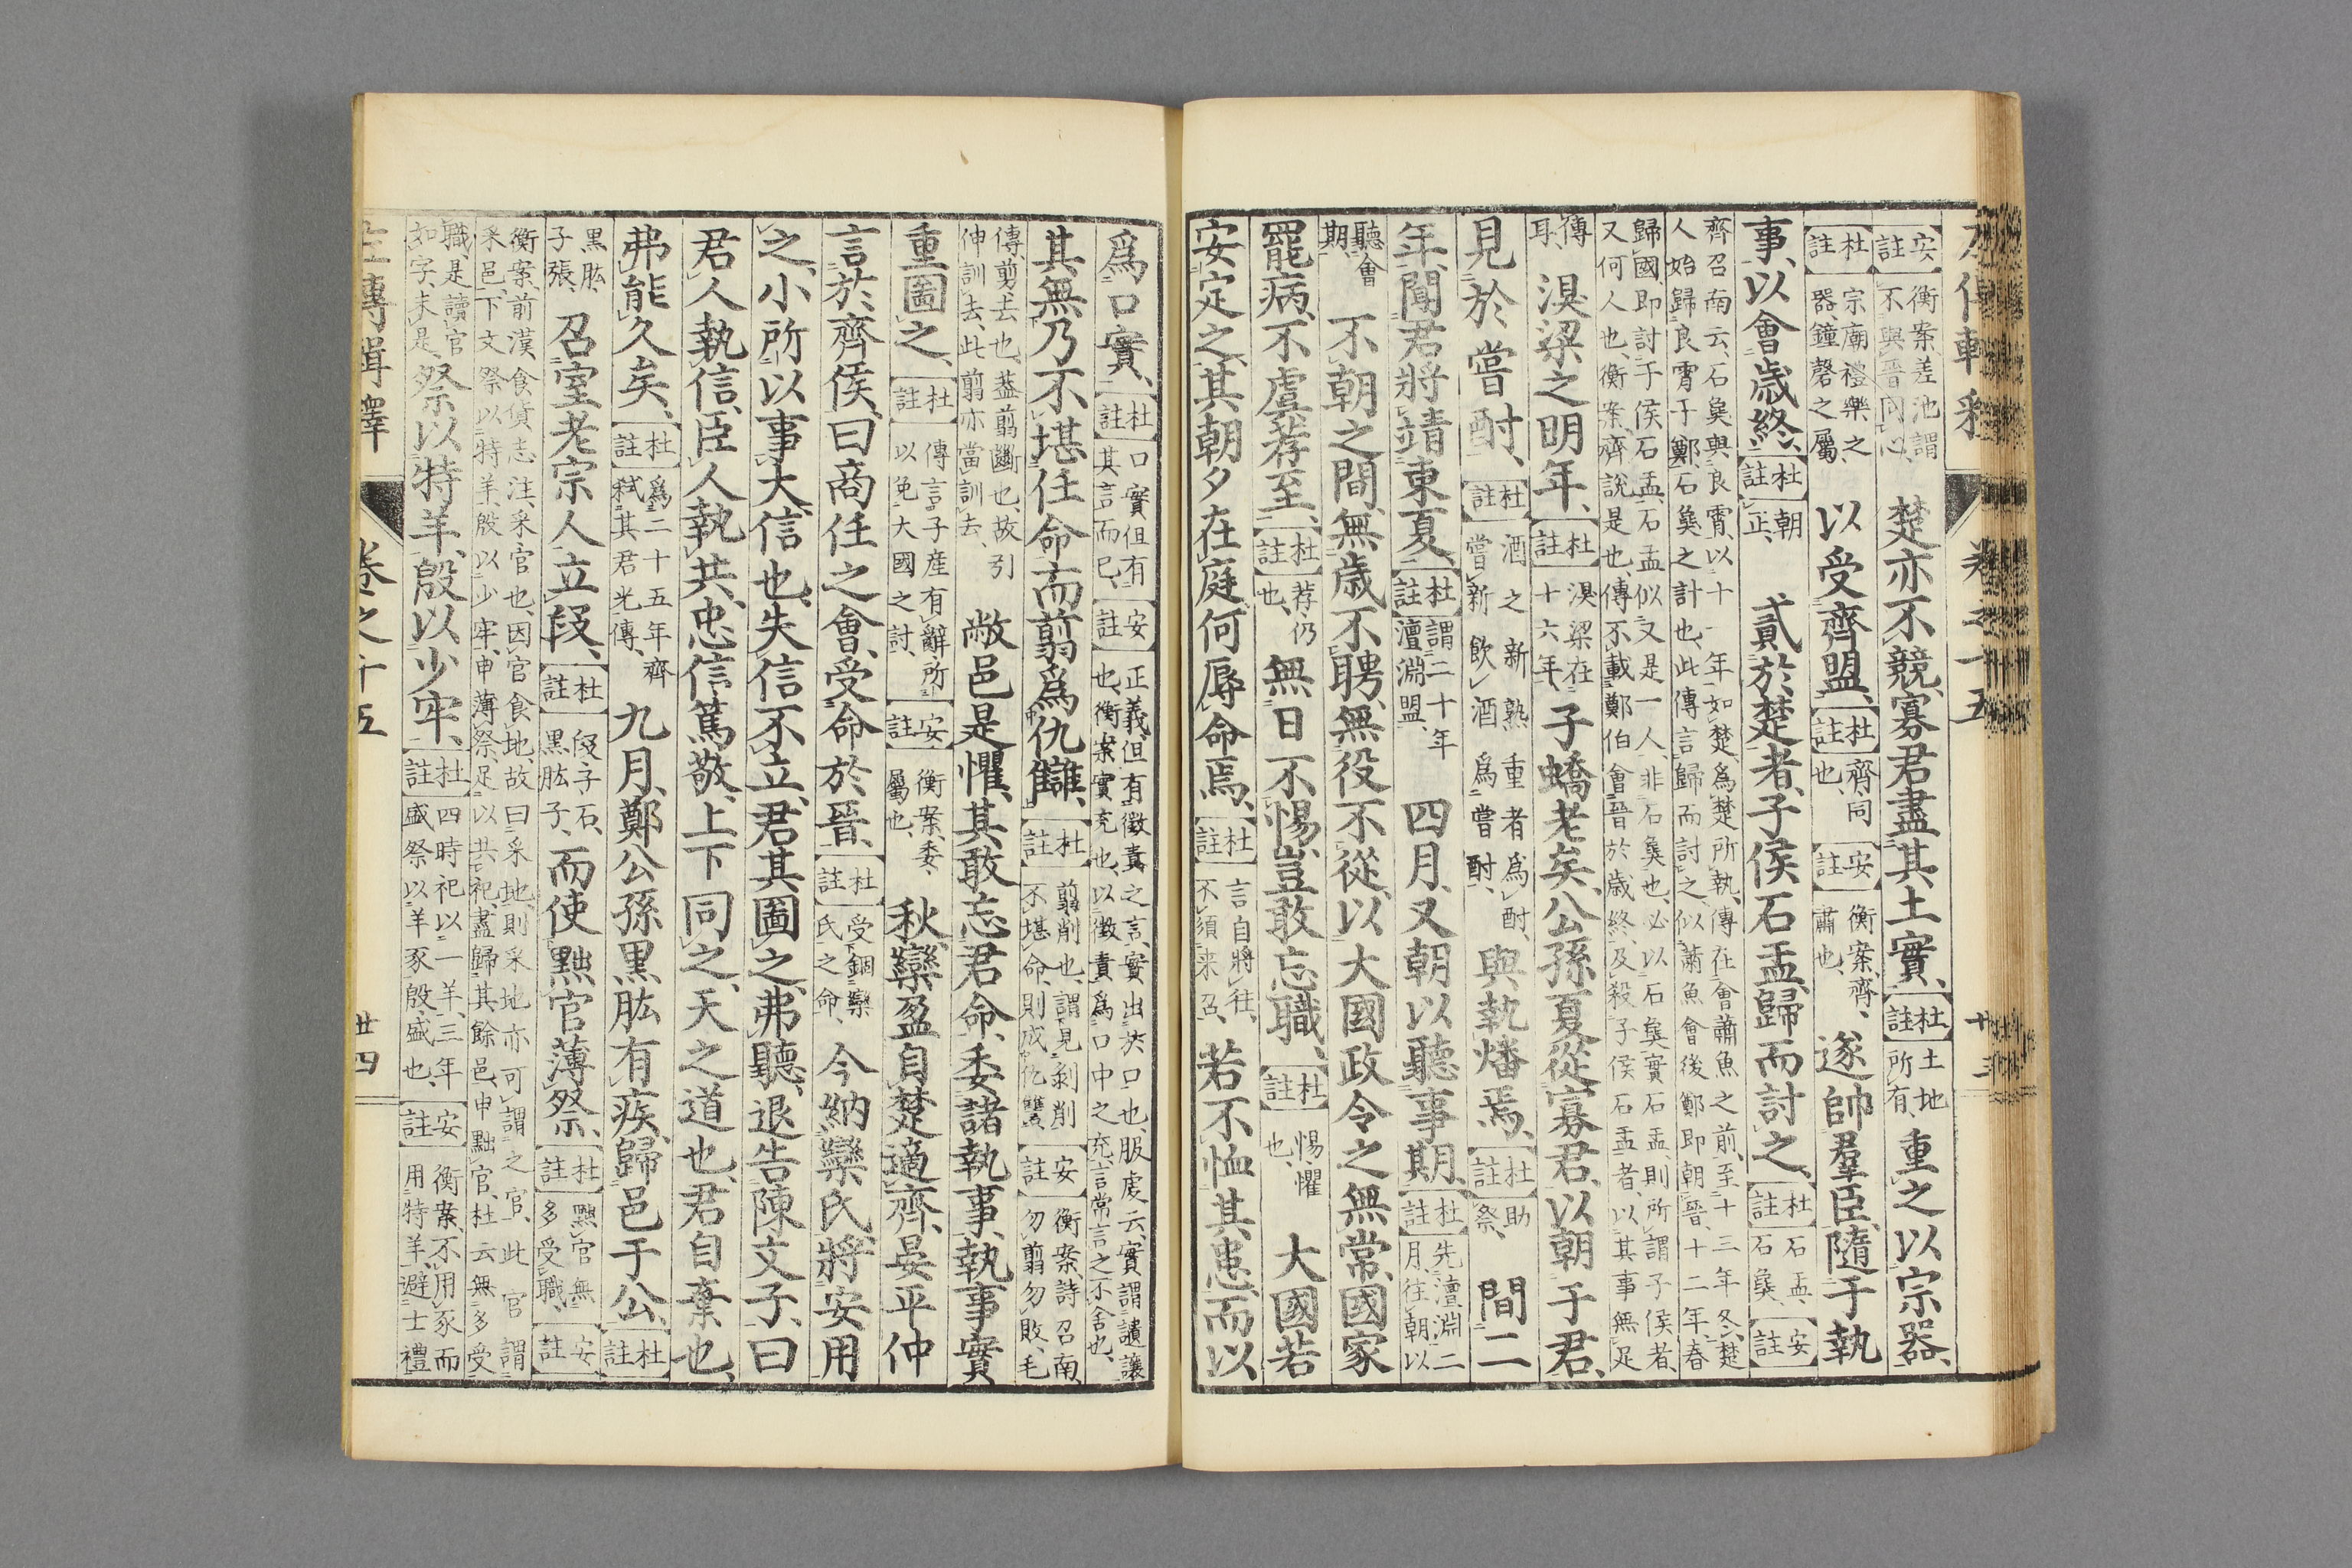 卷之十五
安註衡案、差池謂不與晉同心、楚亦不競、寡君盡其土實、杜註土地所有、重之以宗器、
杜註宗廟禮樂之器、鐘磬之屬、以受齊盟、杜註齊、同也、安註衡案、齊、肅也、遂帥羣臣隨于執
事、以會歲終、杜註朝正、貳於楚者、子侯石盂、歸而討之、杜註石盂、石㚟、安註
齊召南云、石㚟與良霄、以十一年如楚、爲楚所執、傳在會蕭魚之前、至十三年冬、楚
人始歸良霄于鄭、石㚟之計也、此傳言歸而討之、似蕭魚會後鄭即朝晉、十二年春
歸國、即討子侯石盂、石盂似又是一人、非石㚟也、必以石㚟實石盂、則所謂子侯者、
又何人也、衡案、齊說是也、傳不載鄭伯會晉於歲終、及殺子侯石盂者、以其事無足
傳耳、湨梁之明年、杜註湨梁在十六年、子蟜老矣、公孫夏從寡君、以朝于君、
見於嘗酎、杜註酒之新熟重者爲酎、嘗新飮酒爲嘗酎、與執燔焉、杜註助祭、間二
年、聞君將靖東夏、杜註謂二十年澶淵盟、四月、又朝以聽事期、杜註先澶淵二月往朝、以
聽會期、不朝之間、無歲不聘、無役不從、以大國政令之無常、國家
罷病、不虞荐至、杜註荐、仍也、無日不惕、豈敢忘職、杜註惕、懼也、大國若
安定之、其朝夕在庭、何辱命焉、杜註言自將往、不須來召、若不恤其患、而以
爲口實、杜註口實但有其言而已、安註正義、但有徵責之言、實出於口也、服虔云、實謂譴讓也、衡案、實、充也、以徵責爲口中之充、言常言之不舍也、
其無乃不堪任命、而翦爲仇讎、杜註翦、削也、謂見剝削不堪命、則成仇讐、安註衡案、詩召南、勿翦勿敗、毛
傳、剪、去也、葢翦、斷也、故引伸訓去、此翦亦當訓去、敝邑是懼、其敢忘君命、委諸執事、執事實
重圖之、杜註傳言子產有辭、所以免大國之討、安註衡案、委、屬也、秋、欒盈自楚適齊、晏平仲
言於齊侯、曰、商任之會、受命於晉、杜註受錮欒氏之命、今納欒氏、將安用
之、小所以事大、信也、失信不立、君其圖之、弗聽、退告陳文子、曰、
君人執信、臣人執共、忠信篤敬、上下同之、天之道也、君自棄也、
弗能久矣、杜註爲二十五年齊弒其君光傳、九月、鄭公孫黑肱有疾、歸邑于公、杜註
黑肱、子張、召室老宗人立段、杜註段、子石、黑肱子、而使黜官薄祭、杜註黜官、無多受職、安註
衡案、前漢食貨志注、采、官也、因官食地、故曰采地、則采地亦可謂之官、此官謂
采邑、下文祭以特羊、殷以少牢、申薄祭、足以共祀、盡歸其餘邑、申黜官、杜云無多受
職、是讀官如字、未是、祭以特羊、殷以少牢、杜註四時祀以一羊、三年盛祭以羊豕、殷、盛也、安註衡案、不用豕而用特羊、避士禮
左傳輯釋 卷之十五 廿四